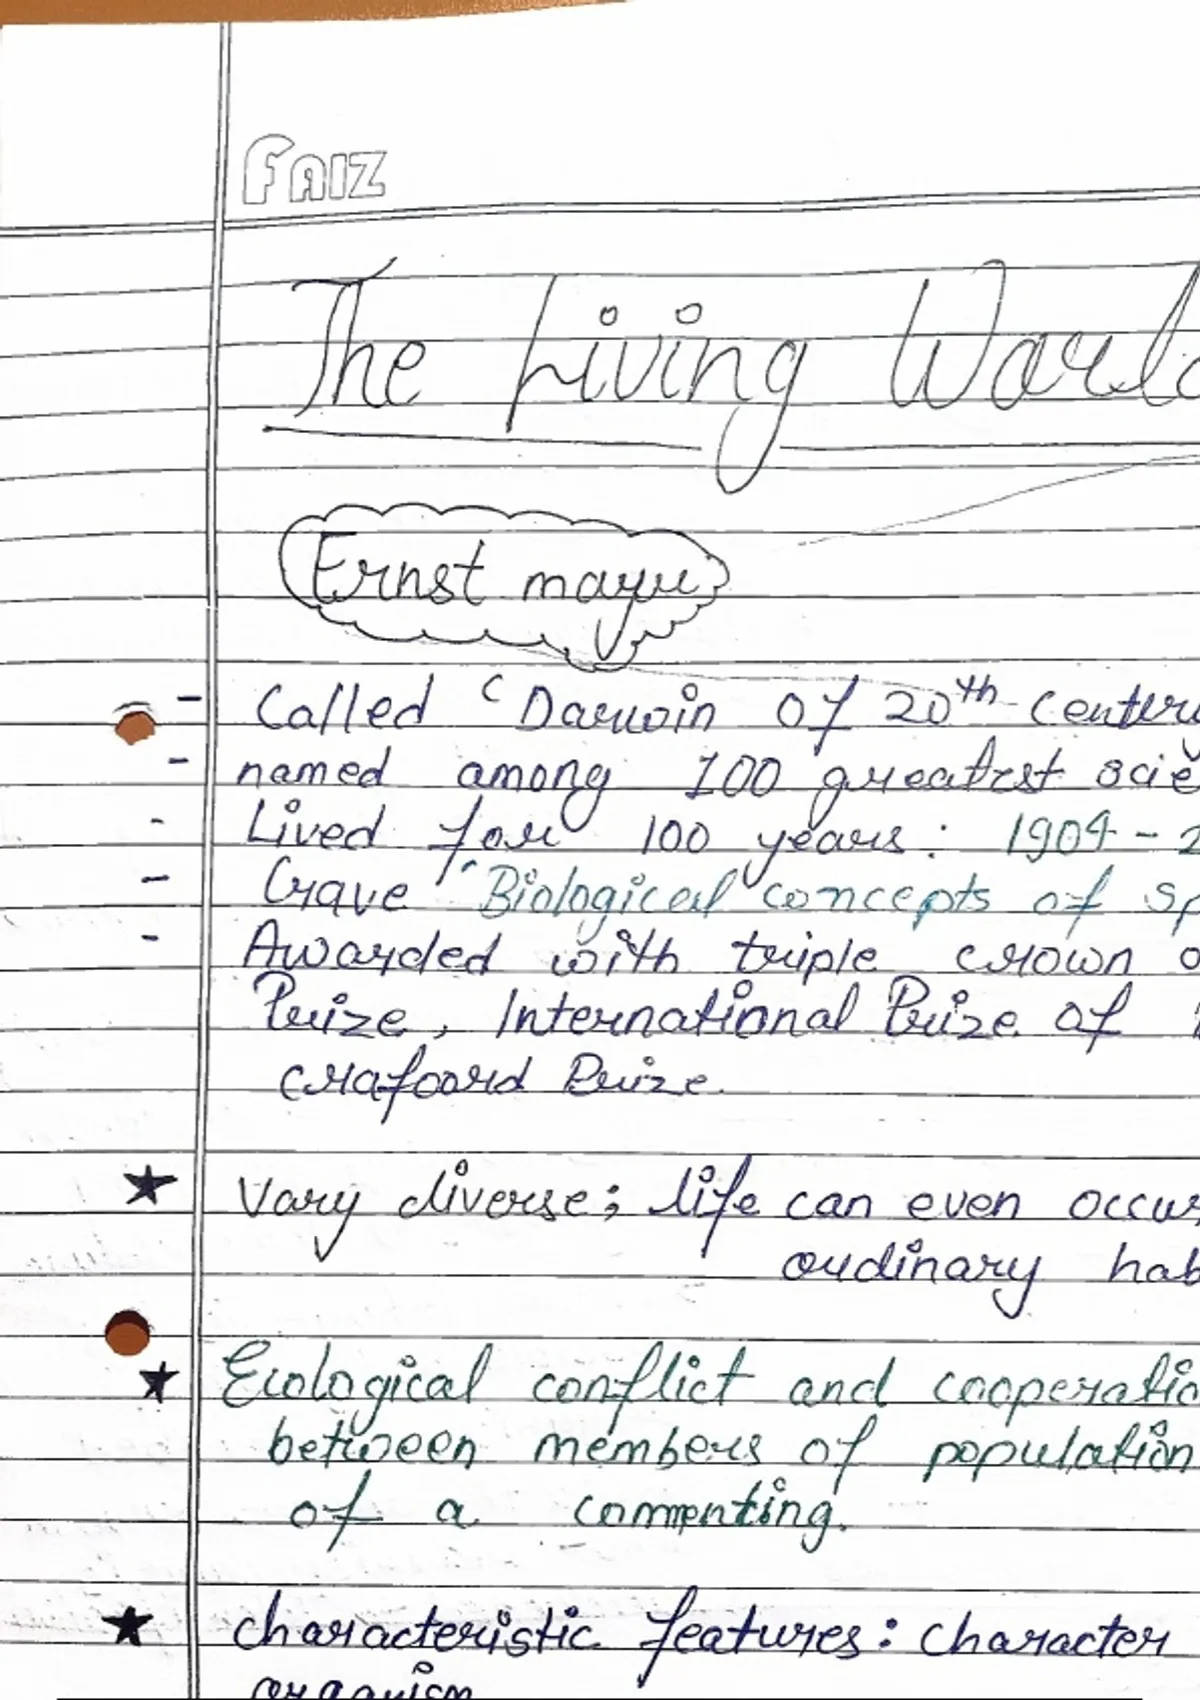 FAIZ
The Living World
Ernst mayr
- Called 'Darwin of 20th Centur
- named among 100 greatest scie
- Lived for 100 years: 1904 - 2
- Gave "Biological concepts of sp
- Awarded with triple crown o
Prize, International Prize of
crafoord Prize.
★ Vary diverse; life can even occur
ordinary hab
★ Ecological conflict and cooperatio
between members of population
of a
★ characteristic features: character
organism